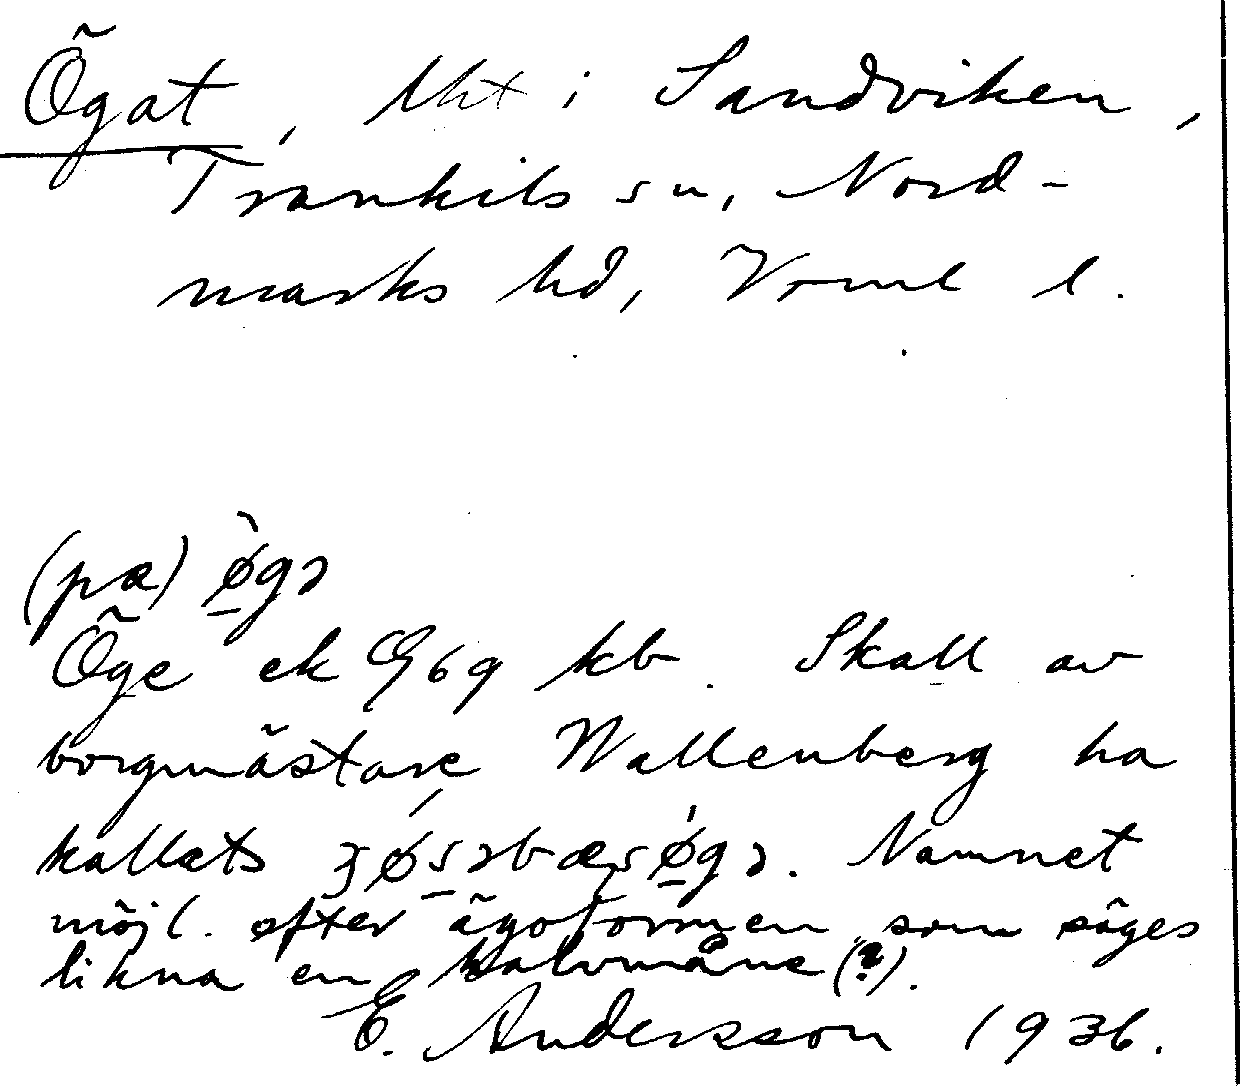 Ögat, lht i Sandviken,
Trankils sn, Nord-
marks hd, Vrml l.
(pæ) ø̀gə
Öge ek G69 kb. Skall av
borgmästare Wallenberg ha
kallats Namnet
möjl. efter ägoformen som säges
likna en halvmåne (?).
E. Andersson 1936.